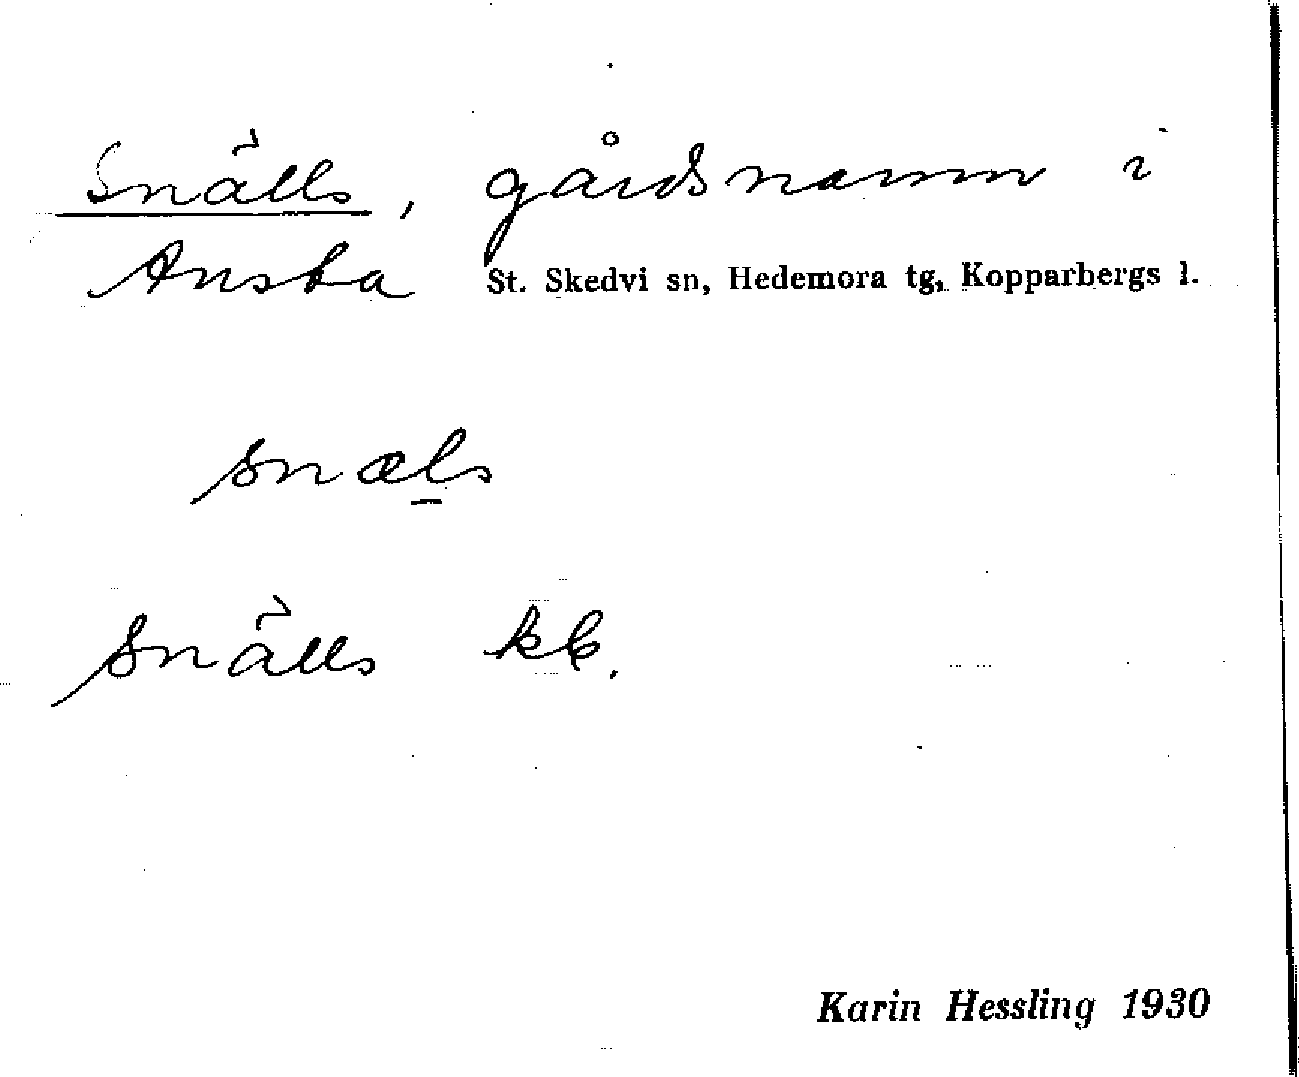 Snälls, gårdsnamn i
Ansta St. Skedvi sn, Hedemora tg, Kopparbergs l.
snæl̲s
Snälls kb.
Karin Hessling 1930